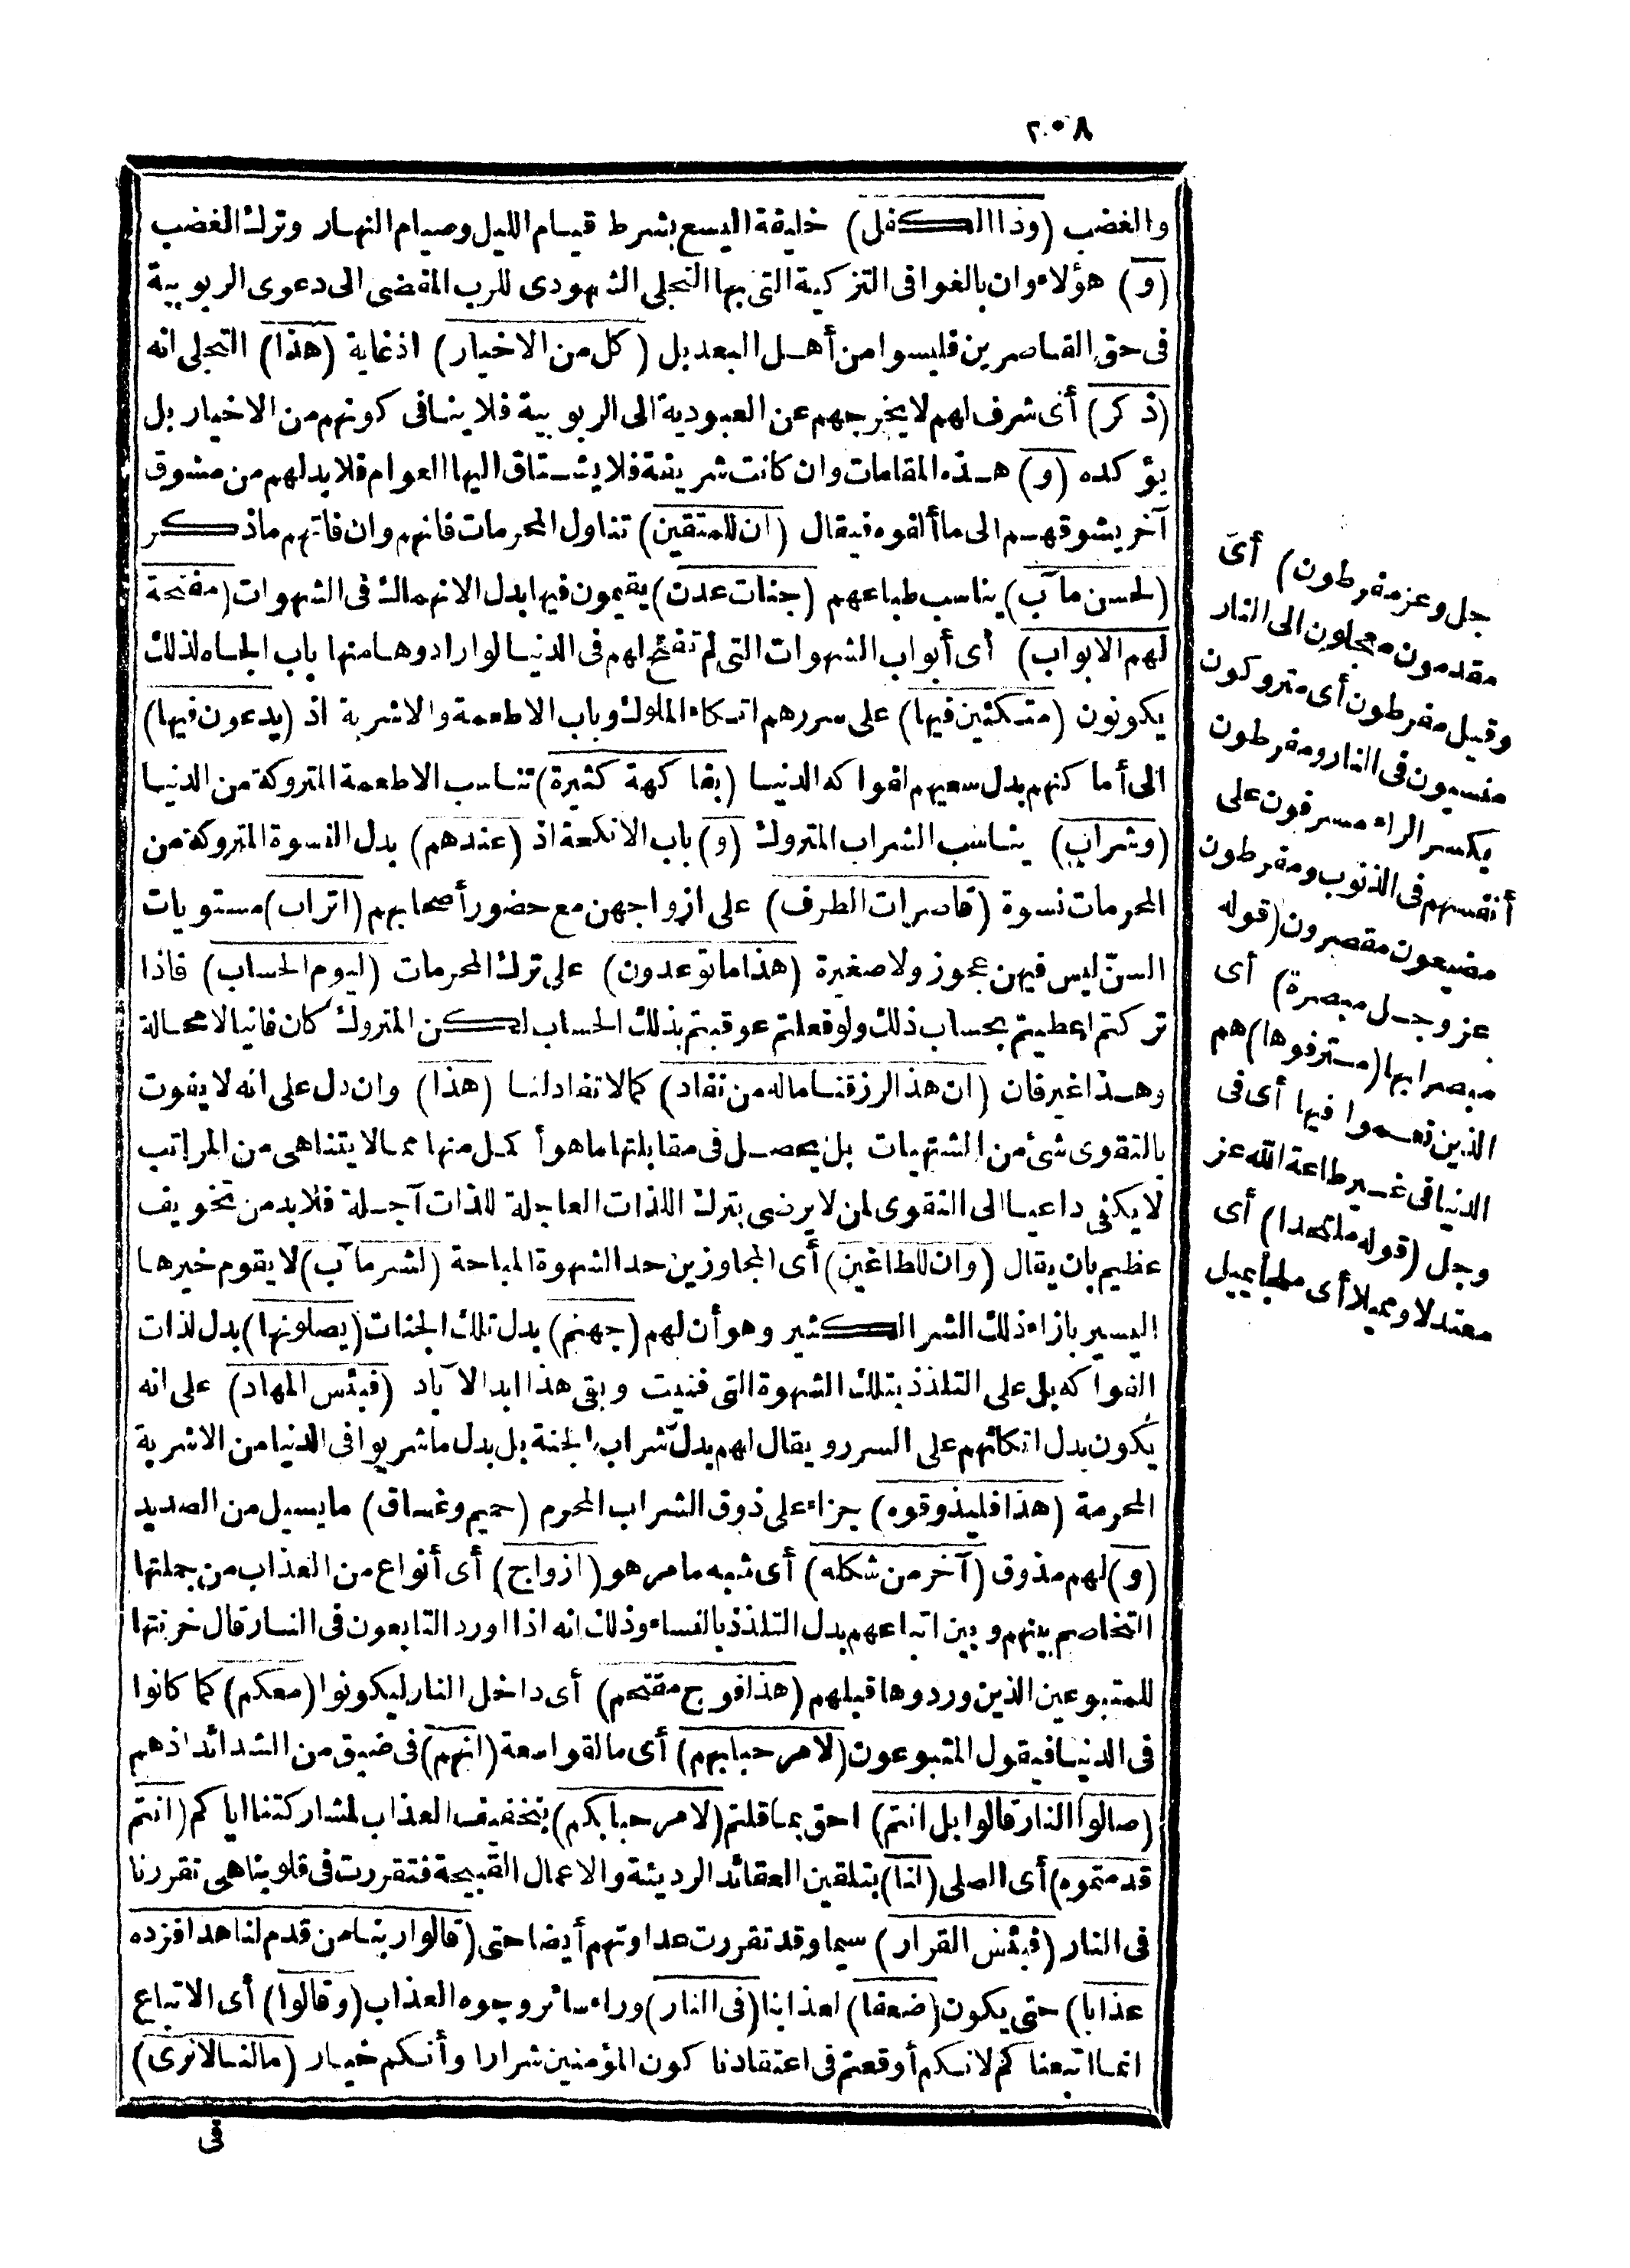 ٢٠٨
والغضب (وذا الكفل) خليفة اليسع بشرط قيام الليل وصيام النهار وترك الغضب
(و) هؤلاء وان بالغوا فى التزكية التى بها التجلى الشهودى للرب المفضى الى دعوى الربوبية
فى حق القاصرين فليسوا من أهل البعد بل (كل من الاخيار) اذ غاية (هذا) التجلى انه
(ذكر) أى شرف لهم لا يخرجهم عن العبودية الى الربوبية فلا ينافى كونهم من الاخيار بل
يؤكده (و) هذه المقامات وان كانت شريفة فلا يشتاق اليها العوام فلا بد لهم من مشوق
آخر يشوقهم الى ما ألفوه فيقال (ان للمتقين) تناول المحرمات فانهم وان فاتهم ما ذكر
(لحسن مآب) يناسب طباعهم (جنات عدن) يقيمون فيها بدل الانهماك فى الشهوات (مفتحة
لهم الابواب) أى أبواب الشهوات التى لم تفتح لهم فى الدنيا لو ارادوها منها باب الجاه لذلك
يكونون (متكئين فيها) على سررهم اتكاء الملوك وباب الاطعمة والاشربة اذ (يدعون فيها)
الى أماكنهم بدل سعيهم لفواكه الدنيا (بفاكهة كثيرة) تناسب الاطعمة المتروكة من الدنيا
(وشراب) يناسب الشراب المتروك (و) باب الانكحة اذ (عندهم) بدل النسوة المتروكة من
المحرمات نسوة (قاصرات الطرف) على ازواجهن مع حضور أصحابهم (اتراب) مستويات
السنّ ليس فيهن عجوز ولا صغيرة (هذا ما توعدون) على ترك المحرمات (ليوم الحساب) فاذا
تركتم اعطيتم بحساب ذلك ولو فعلتم عوقبتم بذلك الحساب لكن المتروك كان فانيا لا محالة
وهذا غير فان (ان هذا لرزقنا ماله من نفاد) كما لا نفاد لنا (هذا) وان دل على انه لا يفوت
بالتقوى شئ من المشتهيات بل يحصل فى مقابلتها ما هو أكمل منها مما لا يتناهى من المراتب
لا يكفى داعيا الى التقوى لمن لا يرضى بترك اللذات العاجلة للذات آجلة فلا بد من تخويف
عظيم بان يقال (وان للطاغين) أى المجاوزين حد الشهوة المباحة (لشر مآب) لا يقوم خيرها
اليسير بازاء ذلك الشر الكثير وهو أن لهم (جهنم) بدل تلك الجنات (يصلونها) بدل لذات
الفواكه بل على التلذذ بتلك الشهوة التى فنيت وبقى هذا ابد الآباد (فبئس المهاد) على انه
يكون بدل اتكائهم على السرر ويقال لهم بدل شراب الجنة بل بدل ما شربوا فى الدنيا من الاشربة
المحرمة (هذا فليذوقوه) جزاء على ذوق الشراب المحرم (حميم وغساق) ما يسيل من الصديد
(و) لهم مذوق (آخر من شكله) أى شبه ما مر هو (ازواج) أى أنواع من العذاب من جملتها
التخاصم بينهم وبين اتباعهم بدل التلذذ بالنساء وذلك انه اذا اورد التابعون فى النار قال خزنتها
للمتبوعين الذين وردوها قبلهم (هذا فوج مقتحم) أى داخل النار ليكونوا (معكم) كما كانوا
فى الدنيا فيقول المتبوعون (لا مرحبا بهم) أى مالة واسعة (انهم) فى ضيق من الشدائد اذ هم
(صالوا النار قالوا بل انتم) احق بما قلتم (لا مرحبا بكم) بتخفيف العذاب لمشاركتنا اياكم (انتم
قدمتموه) أى الصلى (لنا) بتلقين العقائد الرديئة والاعمال القبيحة فتقررت فى قلوبنا هى تقررنا
فى النار (فبئس القرار) سيما وقد تقررت عداوتهم أيضا حتى (قالوا ربنا من قدم لنا هذا فزده
عذابا) حتى يكون (ضعفا) لعذابنا (فى النار) وراء سائر وجوه العذاب (وقالوا) أى الاتباع
انما اتبعناكم لانكم أوقعتم فى اعتقادنا كون المؤمنين شرارا وأنكم خيار (مالنا لا نرى)
فى
جل وعز مفرطون) أى
مقدمون معجلون الى النار
وقيل مفرطون أى متروكون
منسيون فى النار ومفرطون
بكسر الراء مسرفون على
أنفسهم فى الذنوب ومفرطون
مضيعون مقصرون (قوله
عز وجل مبصرة) أى
مبصرا بها (مسترفوها) هم
الذين نعموا فيها أى فى
الدنيا فى غير طاعة الله عز
وجل (قوله ملتحدا) أى
معتدلا ومميلا أى ملجأ يميل